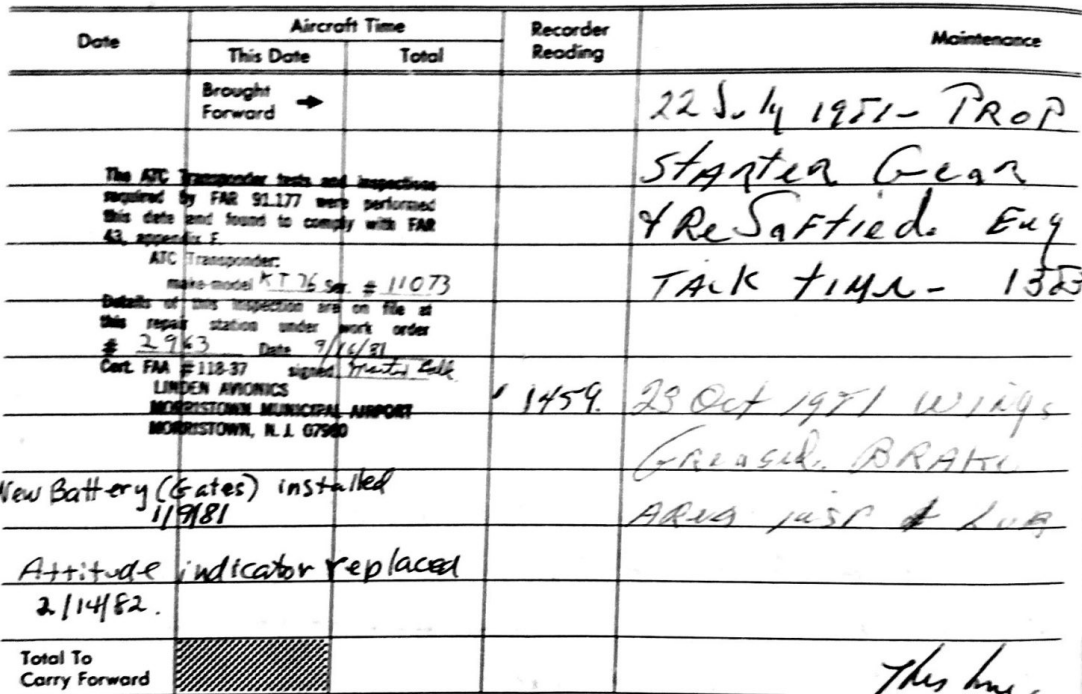 Date
Aircraft Time
This Date
Total
Recorder Reading
Maintenance
Brought Forward
The ATC Transponder tests and inspections
required by FAR 91.177 were performed
this date and found to comply with FAR
43, appendix F.
ATC Transponder:
make-model KT 76 Ser. # 11073
Details of this inspection are on file at
this repair station under work order
# 2963 Date 9/16/81
Cert. FAA #118-37 signed
LINDEN AVIONICS
MORRISTOWN MUNICIPAL AIRPORT
MORRISTOWN, N. J. 07960
New Battery (Gates) installed
1/9/81
Attitude indicator replaced
2/14/82.
Total To
Carry Forward
1459.
22 July 1981 - PROP
Starter Gear
& ReSaftied. Eng
TACK time -
23 Oct 1981 Wings
Greased. BRAKE
AREA insp & Lub
This